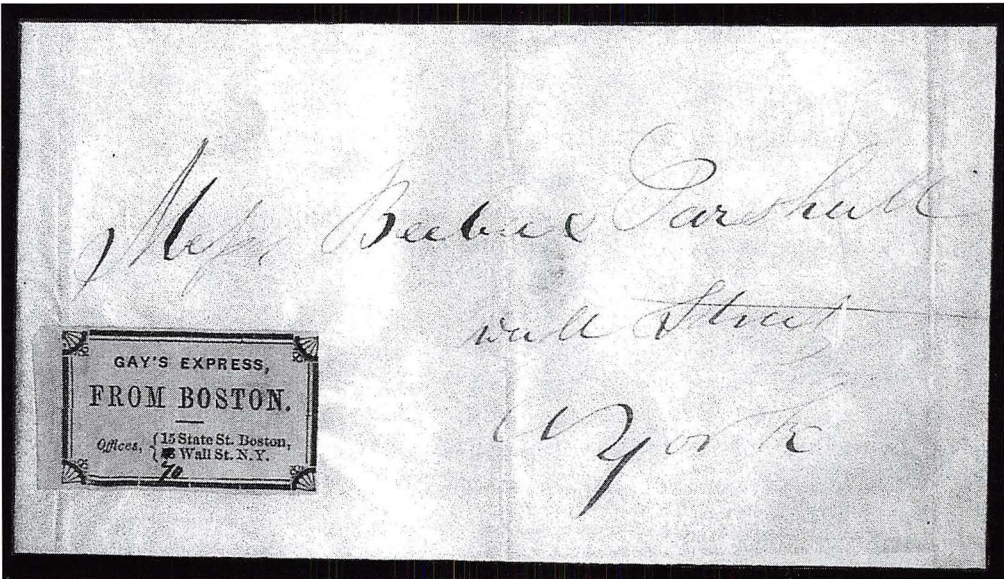 Messrs Beebee & Parshall
Wall Street
N York
GAY'S EXPRESS,
FROM BOSTON.
Offices, { 15 State St. Boston,
Wall St. N.Y.
70